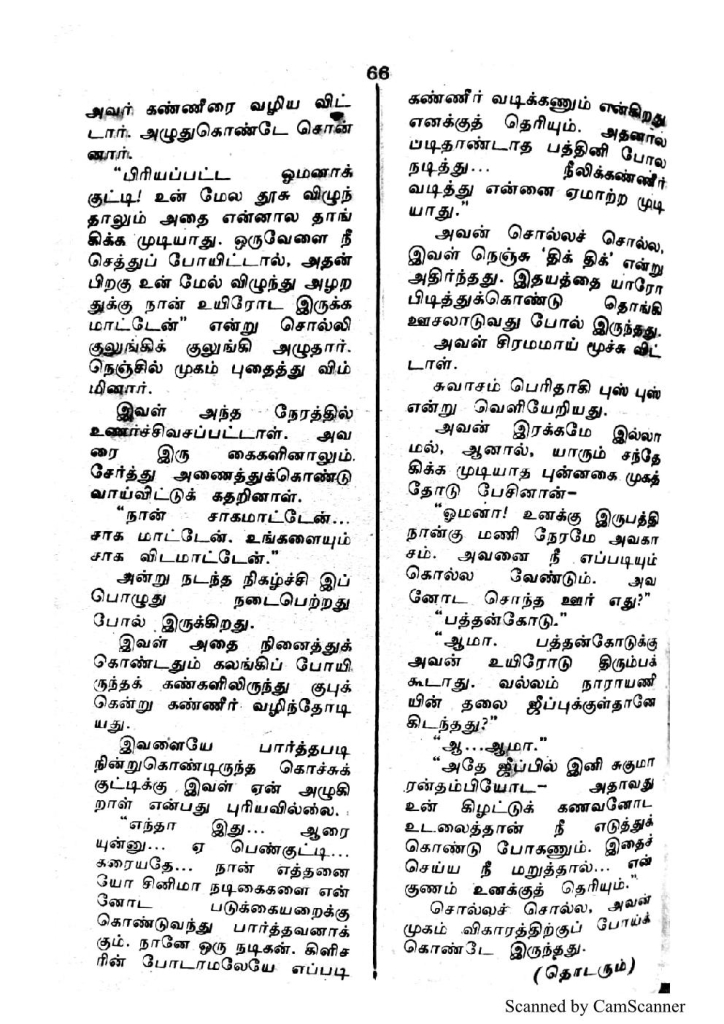 66
அவர் கண்ணீரை வழிய விட்
டார். அழுதுகொண்டே சொன்
னார்.
"பிரியப்பட்ட ஓமனாக்
குட்டி! உன் மேல தூசு விழுந்
தாலும் அதை என்னால தாங்
கிக்க முடியாது. ஒருவேளை நீ
செத்துப் போயிட்டால், அதன்
பிறகு உன் மேல் விழுந்து அழற
துக்கு நான் உயிரோட இருக்க
மாட்டேன்" என்று சொல்லி
குலுங்கிக் குலுங்கி அழுதார்.
நெஞ்சில் முகம் புதைத்து விம்
மினார்.
இவள் அந்த நேரத்தில்
உணர்ச்சிவசப்பட்டாள். அவ
ரை இரு கைகளினாலும்
சேர்த்து அணைத்துக்கொண்டு
வாய்விட்டுக் கதறினாள்.
"நான் சாகமாட்டேன்...
சாக மாட்டேன். உங்களையும்
சாக விடமாட்டேன்."
அன்று நடந்த நிகழ்ச்சி இப்
பொழுது நடைபெற்றது
போல் இருக்கிறது.
இவள் அதை நினைத்துக்
கொண்டதும் கலங்கிப் போயி
ருந்தக் கண்களிலிருந்து குபுக்
கென்று கண்ணீர் வழிந்தோடி
யது.
இவளையே பார்த்தபடி
நின்றுகொண்டிருந்த கொச்சுக்
குட்டிக்கு இவள் ஏன் அழுகி
றாள் என்பது புரியவில்லை.
"எந்தா இது... ஆரை
யுன்னு... ஏ பெண்குட்டி...
கரையதே... நான் எத்தனை
யோ சினிமா நடிகைகளை என்
னோட படுக்கையறைக்கு
கொண்டுவந்து பார்த்தவனாக்
கும். நானே ஒரு நடிகன். கிளிச
ரின் போடாமலேயே எப்படி
கண்ணீர் வடிக்கணும் என்கிறது
எனக்குத் தெரியும். அதனால
படிதாண்டாத பத்தினி போல
நடித்து... நீலிக்கண்ணீர்
வடித்து என்னை ஏமாற்ற முடி
யாது."
அவன் சொல்லச் சொல்ல,
இவள் நெஞ்சு 'திக் திக்' என்று
அதிர்ந்தது. இதயத்தை யாரோ
பிடித்துக்கொண்டு தொங்கி
ஊசலாடுவது போல் இருந்தது.
அவள் சிரமமாய் மூச்சு விட்
டாள்.
சுவாசம் பெரிதாகி புஸ் புஸ்
என்று வெளியேறியது.
அவன் இரக்கமே இல்லா
மல், ஆனால், யாரும் சந்தே
கிக்க முடியாத புன்னகை முகத்
தோடு பேசினான்—
"ஓமனா! உனக்கு இருபத்தி
நான்கு மணி நேரமே அவகா
சம். அவனை நீ எப்படியும்
கொல்ல வேண்டும். அவ
னோட சொந்த ஊர் எது?"
"பத்தன்கோடு."
"ஆமா. பத்தன்கோடுக்கு
அவன் உயிரோடு திரும்பக்
கூடாது. வல்லம் நாராயணி
யின் தலை ஜீப்புக்குள்தானே
கிடந்தது?"
"ஆ...ஆமா."
"அதே ஜீப்பில் இனி சுகுமா
ரன்தம்பியோட— அதாவது
உன் கிழட்டுக் கணவனோட
உடலைத்தான் நீ எடுத்துக்
கொண்டு போகணும். இதைச்
செய்ய நீ மறுத்தால்... என்
குணம் உனக்குத் தெரியும்."
சொல்லச் சொல்ல, அவன்
முகம் விகாரத்திற்குப் போய்க்
கொண்டே இருந்தது.
(தொடரும்)
Scanned by CamScanner